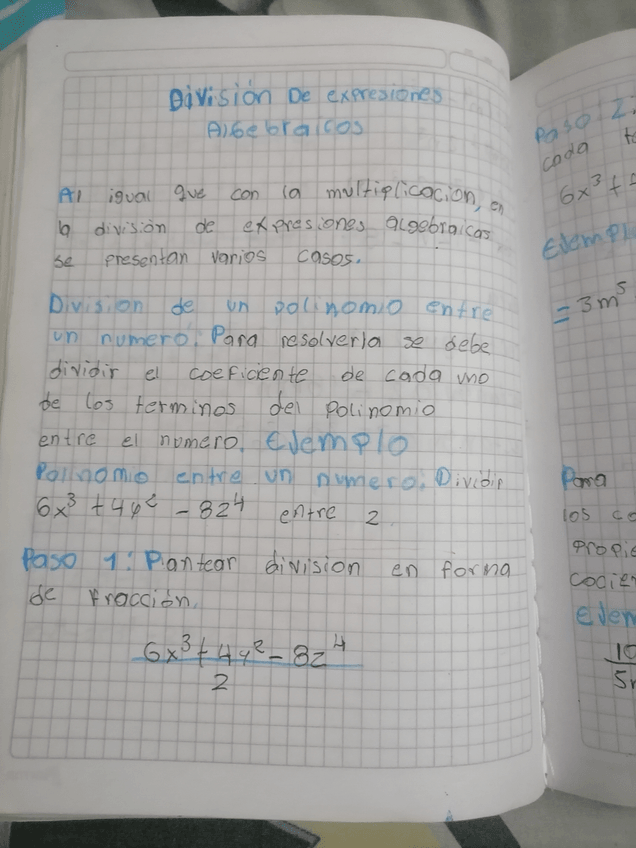 División De expresiones
Algebraicos
Al igual que con la multiplicacion, en
la división de expresiones algebraicas
se presentan varios casos.
Division de un polinomio entre
un numero. Para resolverla se debe
dividir el coeficiente de cada uno
de los terminos del polinomio
entre el numero. Ejemplo
Polinomio entre un numero: Dividir
6x³ + 4y² - 8z⁴ entre 2
Paso 1: Plantear division en forma
de fracción.
6x³ + 4y² - 8z⁴
2
Paso 2:
cada
6x³ +
Ejempl
= 3m⁵
Para
los co
propie
cocien
Ejem
10
5